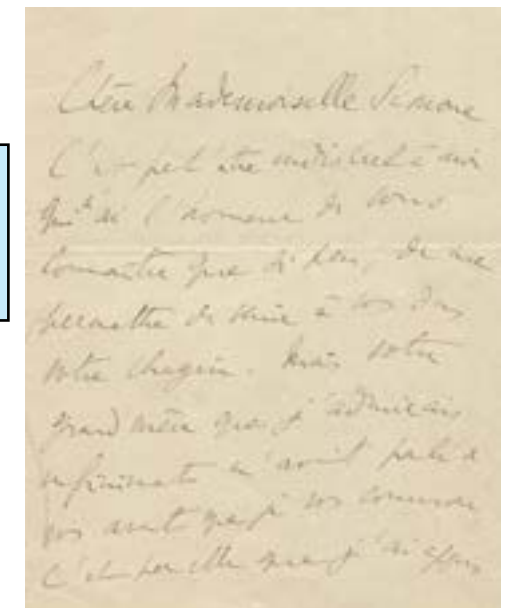 Chère Mademoiselle Simone
C'est peut être indiscret à moi
qui n'ai l'honneur de vous
connaître que si peu, de me
permettre de venir à vos
votre chagrin. Mais votre
grand mère que j'admirais
infiniment m'avait parlé de
vous avant que je vous connusse
C'est par elle que j'ai